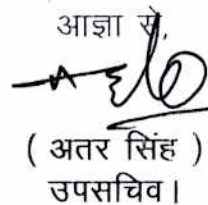 आज्ञा से,
( अतर सिंह )
उपसचिव।